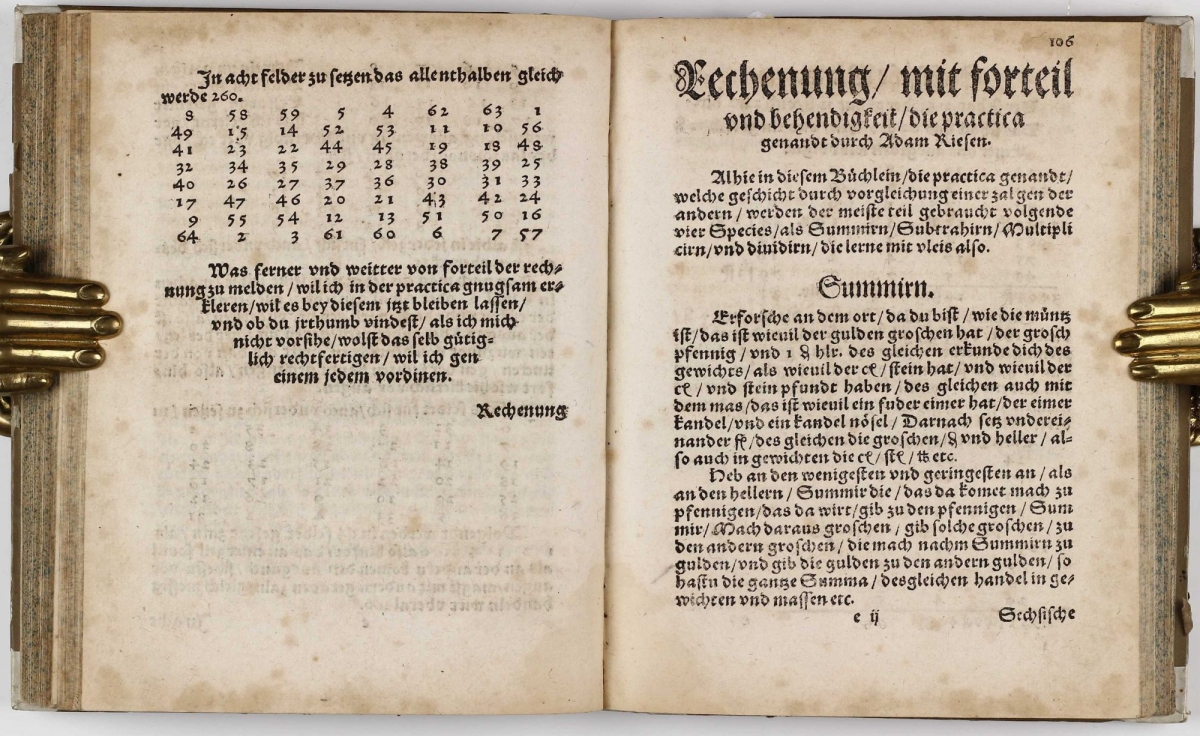 In acht felder zu setzen das allenthalben gleich
werde 260.
8 58 59 5 4 62 63 1
49 15 14 52 53 11 10 56
41 23 22 44 45 19 18 48
32 34 35 29 28 38 39 25
40 26 27 37 36 30 31 33
17 47 46 20 21 43 42 24
9 55 54 12 13 51 50 16
64 2 3 61 60 6 7 57
Was ferner vnd weitter von forteil der rech⸗
nung zu melden/ wil ich in der practica gnugsam er⸗
kleren/wil es bey diesem jtzt bleiben lassen/
vnd ob du jrthumb vindest/ als ich mich
nicht vorsihe/wolst das selb gütig⸗
lich rechtfertigen/ wil ich gen
einem jedem vordinen.
Rechenung
106
Rechenung/ mit forteil
vnd behendigkeit/die practica
genandt durch Adam Riesen.
Alhie in diesem Büchlein/die practica genandt/
welche geschicht durch vorgleichung einer zal gen der
andern/ werden der meiste teil gebraucht volgende
vier Species/als Summirn/Subtrahirn/Multipli
cirn/vnd diuidirn/ die lerne mit vleis also.
Summirn.
Erforsche an dem ort/ da du bist/ wie die müntz
ist/das ist wieuil der gulden groschen hat/ der grosch
pfennig/ vnd 1 ₰ hlr. des gleichen erkunde dich des
gewichts/ als wieuil der / stein hat/ vnd wieuil der
/ vnd stein pfundt haben/ des gleichen auch mit
dem mas/das ist wieuil ein fuder eimer hat/der eimer
kandel/vnd ein kandel nösel/ Darnach setz vnderei⸗
nander /des gleichen die groschen/₰ vnd heller/ al⸗
so auch in gewichten die / / ℔ etc.
Heb an den wenigesten vnd geringesten an/ als
an den hellern/ Summir die/das da komet mach zu
pfennigen/das da wirt/gib zu den pfennigen/ Sum
mir/Mach daraus groschen/ gib solche groschen/ zu
den andern groschen/ die mach nachm Summirn zu
gulden/vnd gib die gulden zu den andern gulden/ so
hastu die gantze Summa/ desgleichen handel in ge⸗
wichten vnd massen etc.
e ij Sechsische